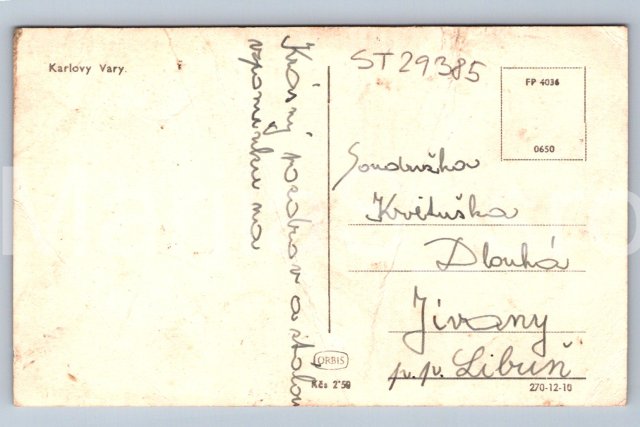 Karlovy Vary.
Krásný pozdrav a
vzpomínku na
ST 29385
FP 4036
0650
Soudružka
Květuška
Dlouhá
Jivany
p.p. Libuň
ORBIS
Kčs 2'50
270-12-10